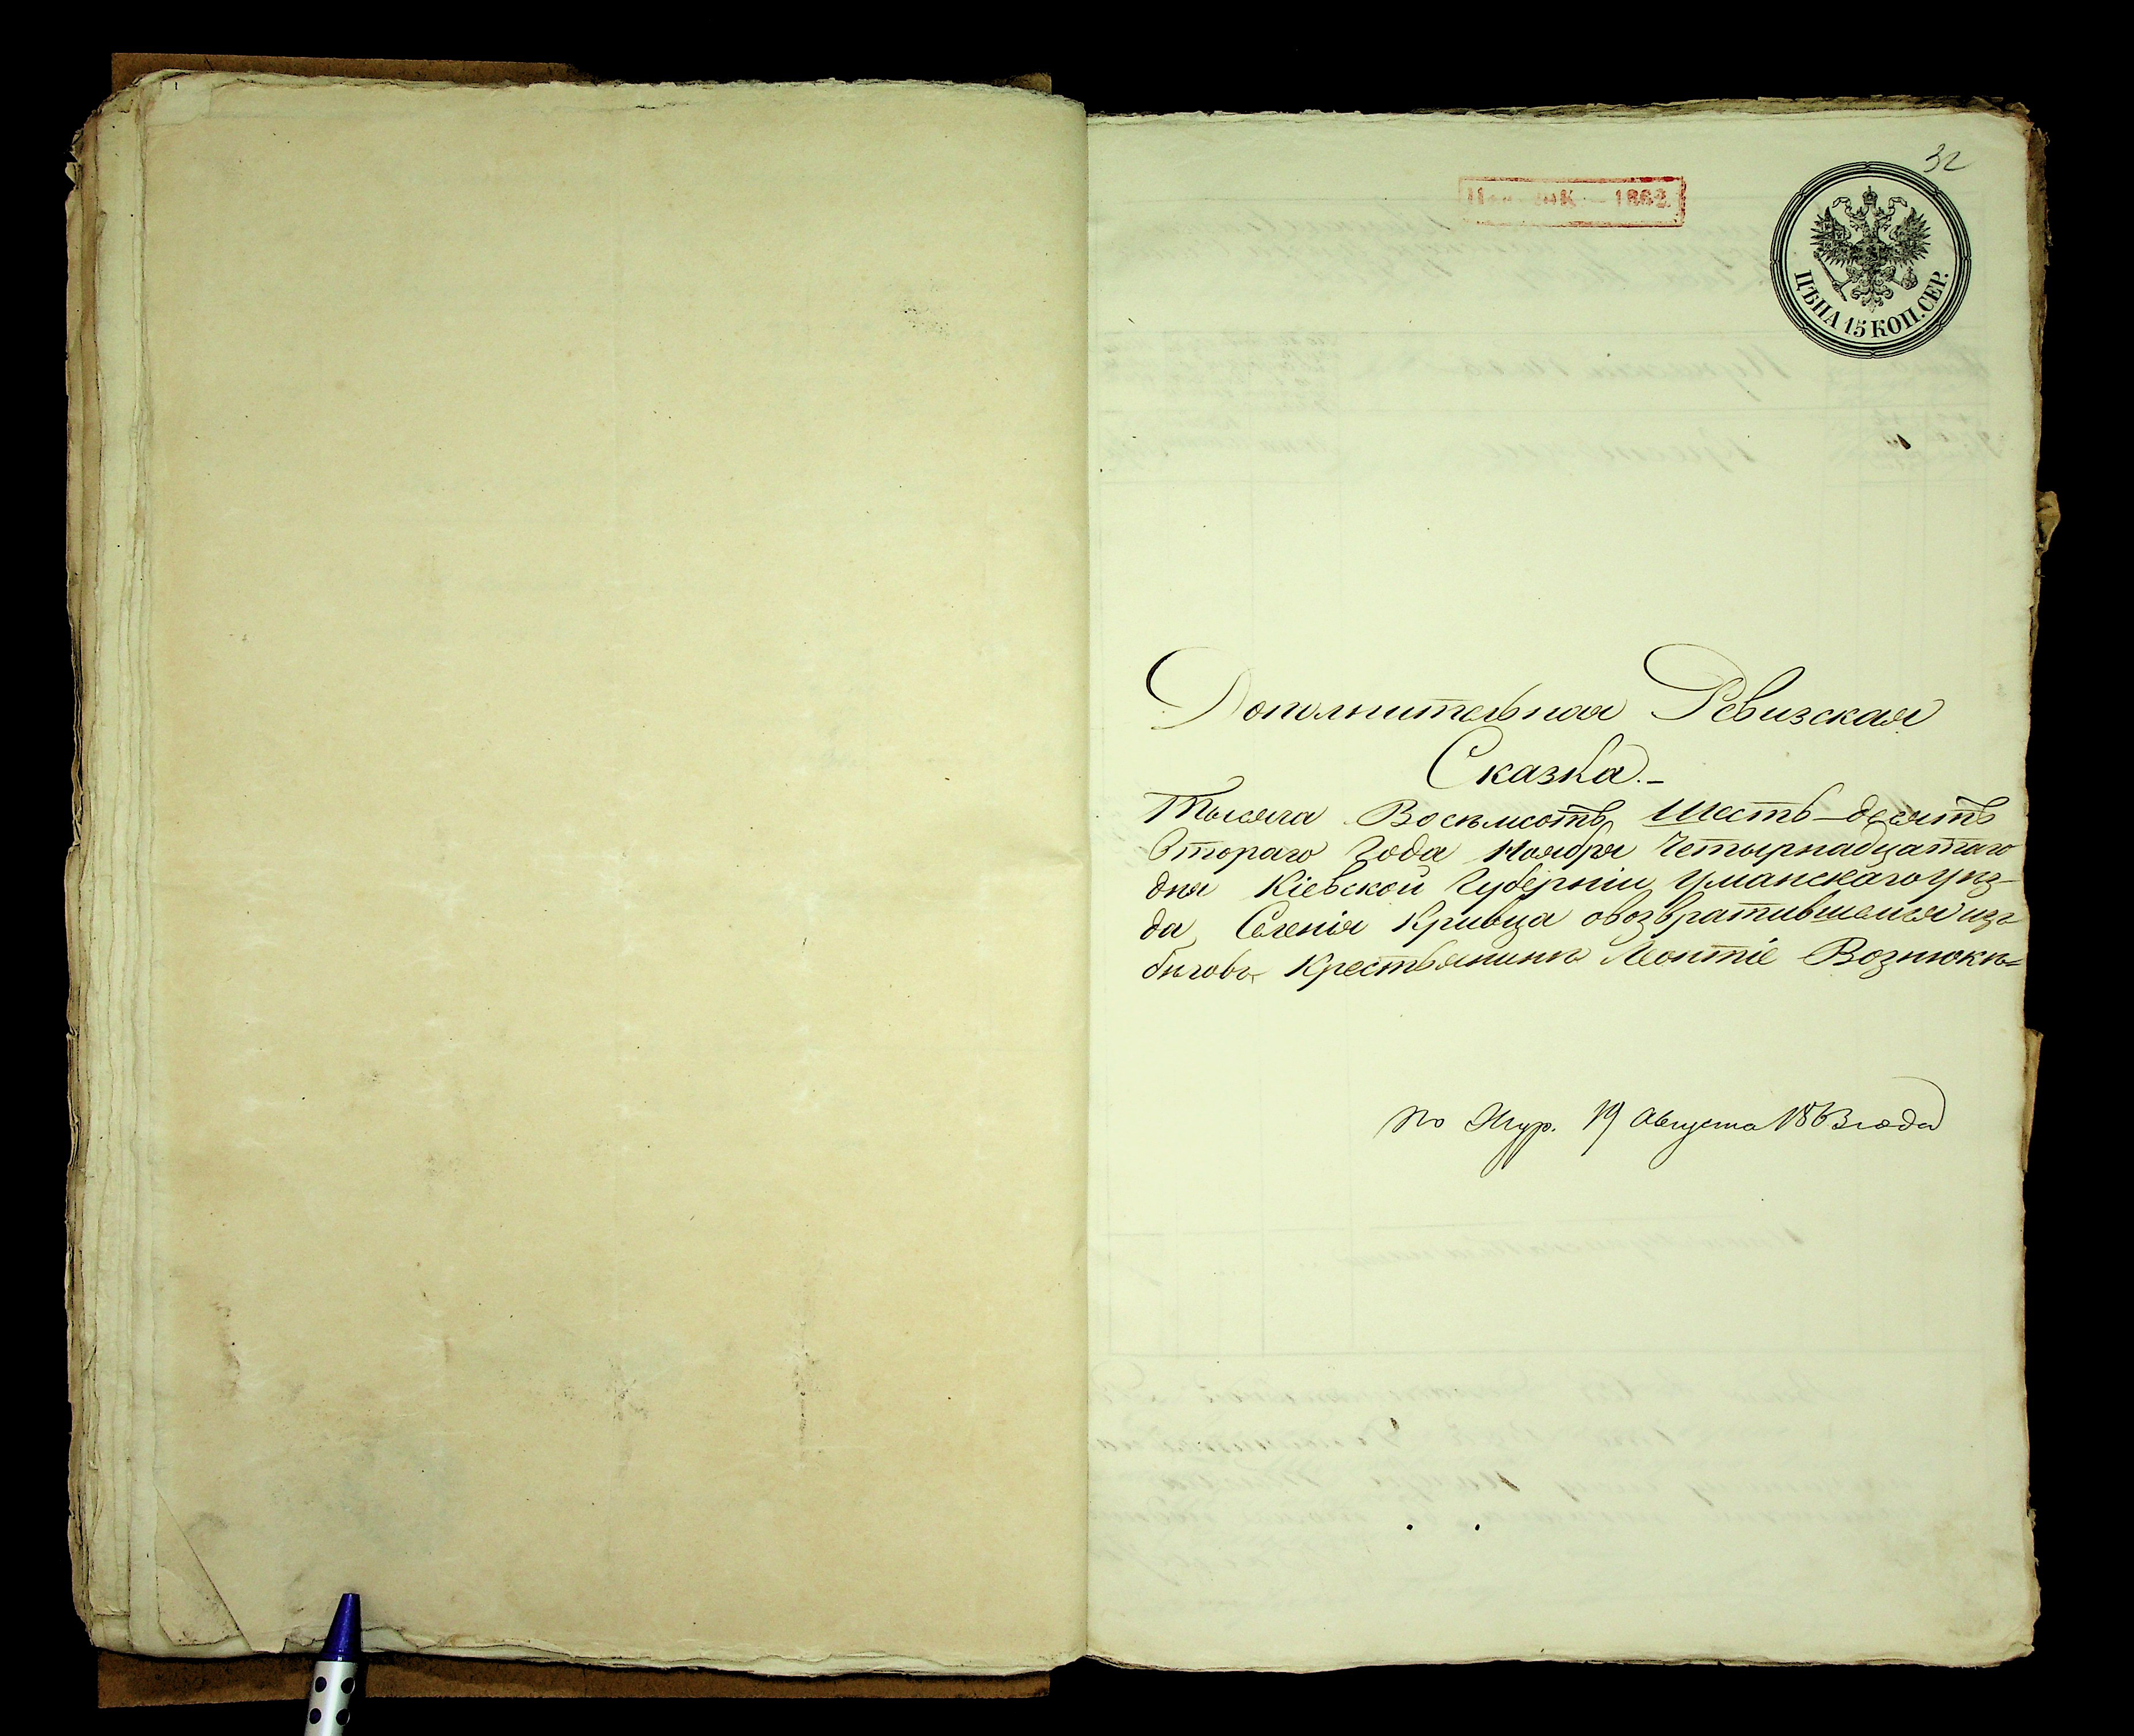 32
1862
ЦѢНА 15 КОП. СЕР.
Дополнительная Ревизская
Сказка.-
Тысяча Восемьсотъ Шесть-десятъ
Втораго Года Ноября Четырнадцатаго
дня Кіевской Губерніи Уманскаго уѣз-
да Селенія Кривца о возвратившемся изъ
бѣговъ Крестьянинѣ Леонтіе Вознюкѣ=
по Жур. 19 Августа 1863 года